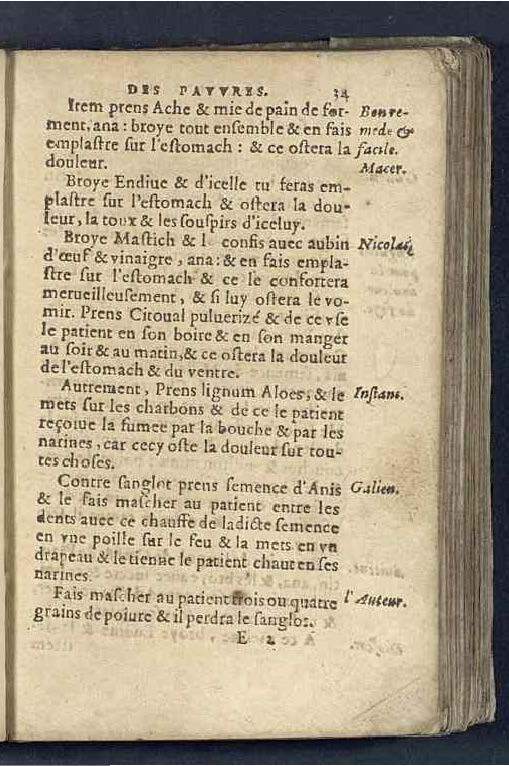 DES PAVVRES. 34
Item prens Ache & mie de pain de for- Bon re-
ment, ana: broye tout ensemble & en fais mede &
emplastre sur l'estomach: & ce ostera la facile.
douleur. Macer.
Broye Endiue & d'icelle tu feras em-
plastre sur l'estomach & ostera la dou-
leur, la toux & les souspirs d'iceluy.
Broye Mastich & l confis auec aubin Nicolas,
d'œuf & vinaigre, ana: & en fais empla-
stre sur l'estomach & ce le confortera
merueilleusement, & si luy ostera le vo-
mir. Prens Citoual puluerizé & de ce vse
le patient en son boire & en son manger
au soir & au matin, & ce ostera la douleur
de l'estomach & du ventre.
Autrement, Prens lignum Aloes, & le Instans.
mets sur les charbons & de ce le patient
reçoiue la fumee par la bouche & par les
narines, car cecy oste la douleur sur tou-
tes choses.
Contre sanglot prens semence d'Anis Galien.
& le fais mascher au patient entre les
dents auec ce chauffe de ladicte semence
en vne poille sur le feu & la mets en vn
drapeau & le tienne le patient chaut en ses
narines.
Fais mascher au patient trois ou quatre l'Auteur.
grains de poiure & il perdra le sanglot.
E 2